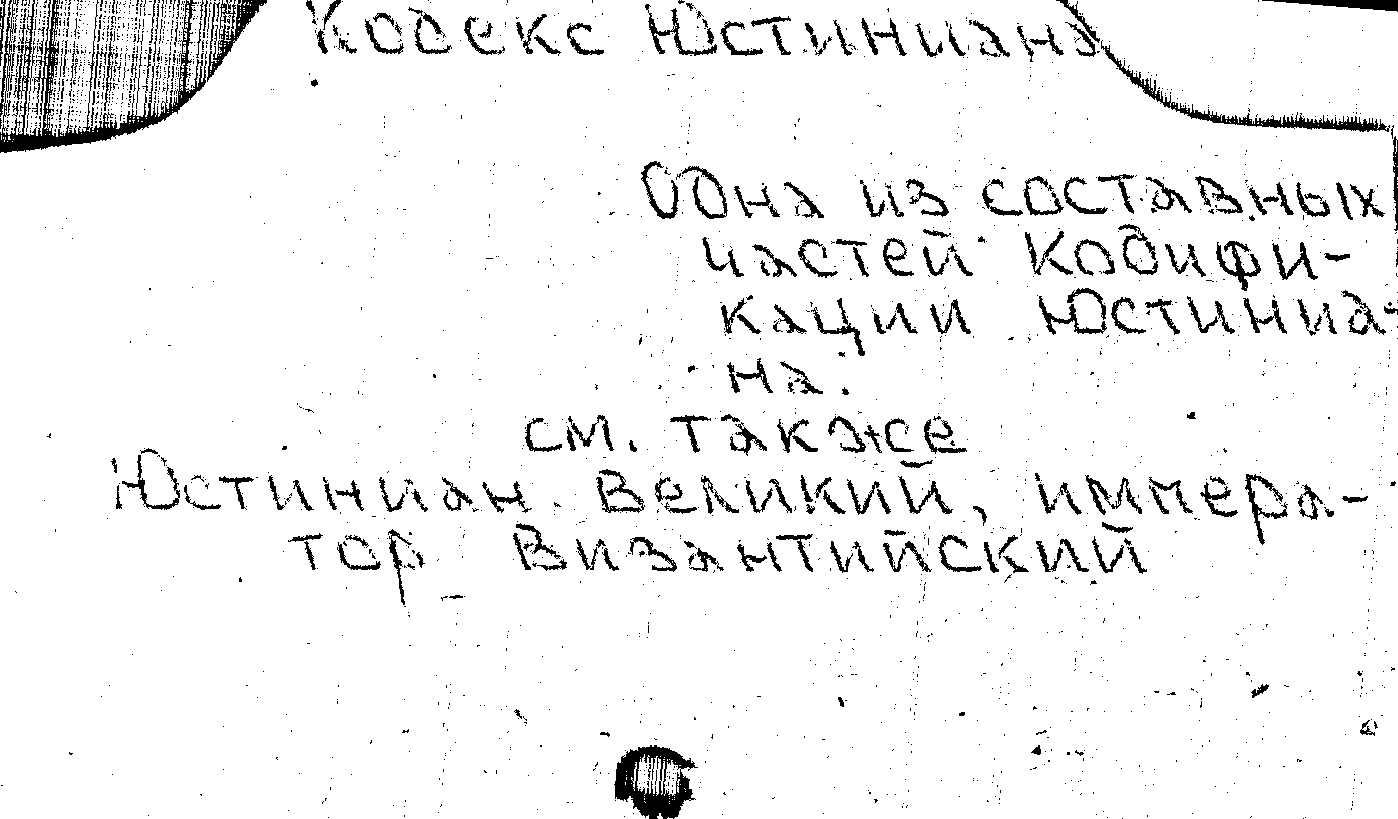 Кодекс Юстиниана
Одна из составных
частей Кодифи-
кации Юстиниа-
на.
см. также
Юстиниан Великий, импера-
тор Византийский